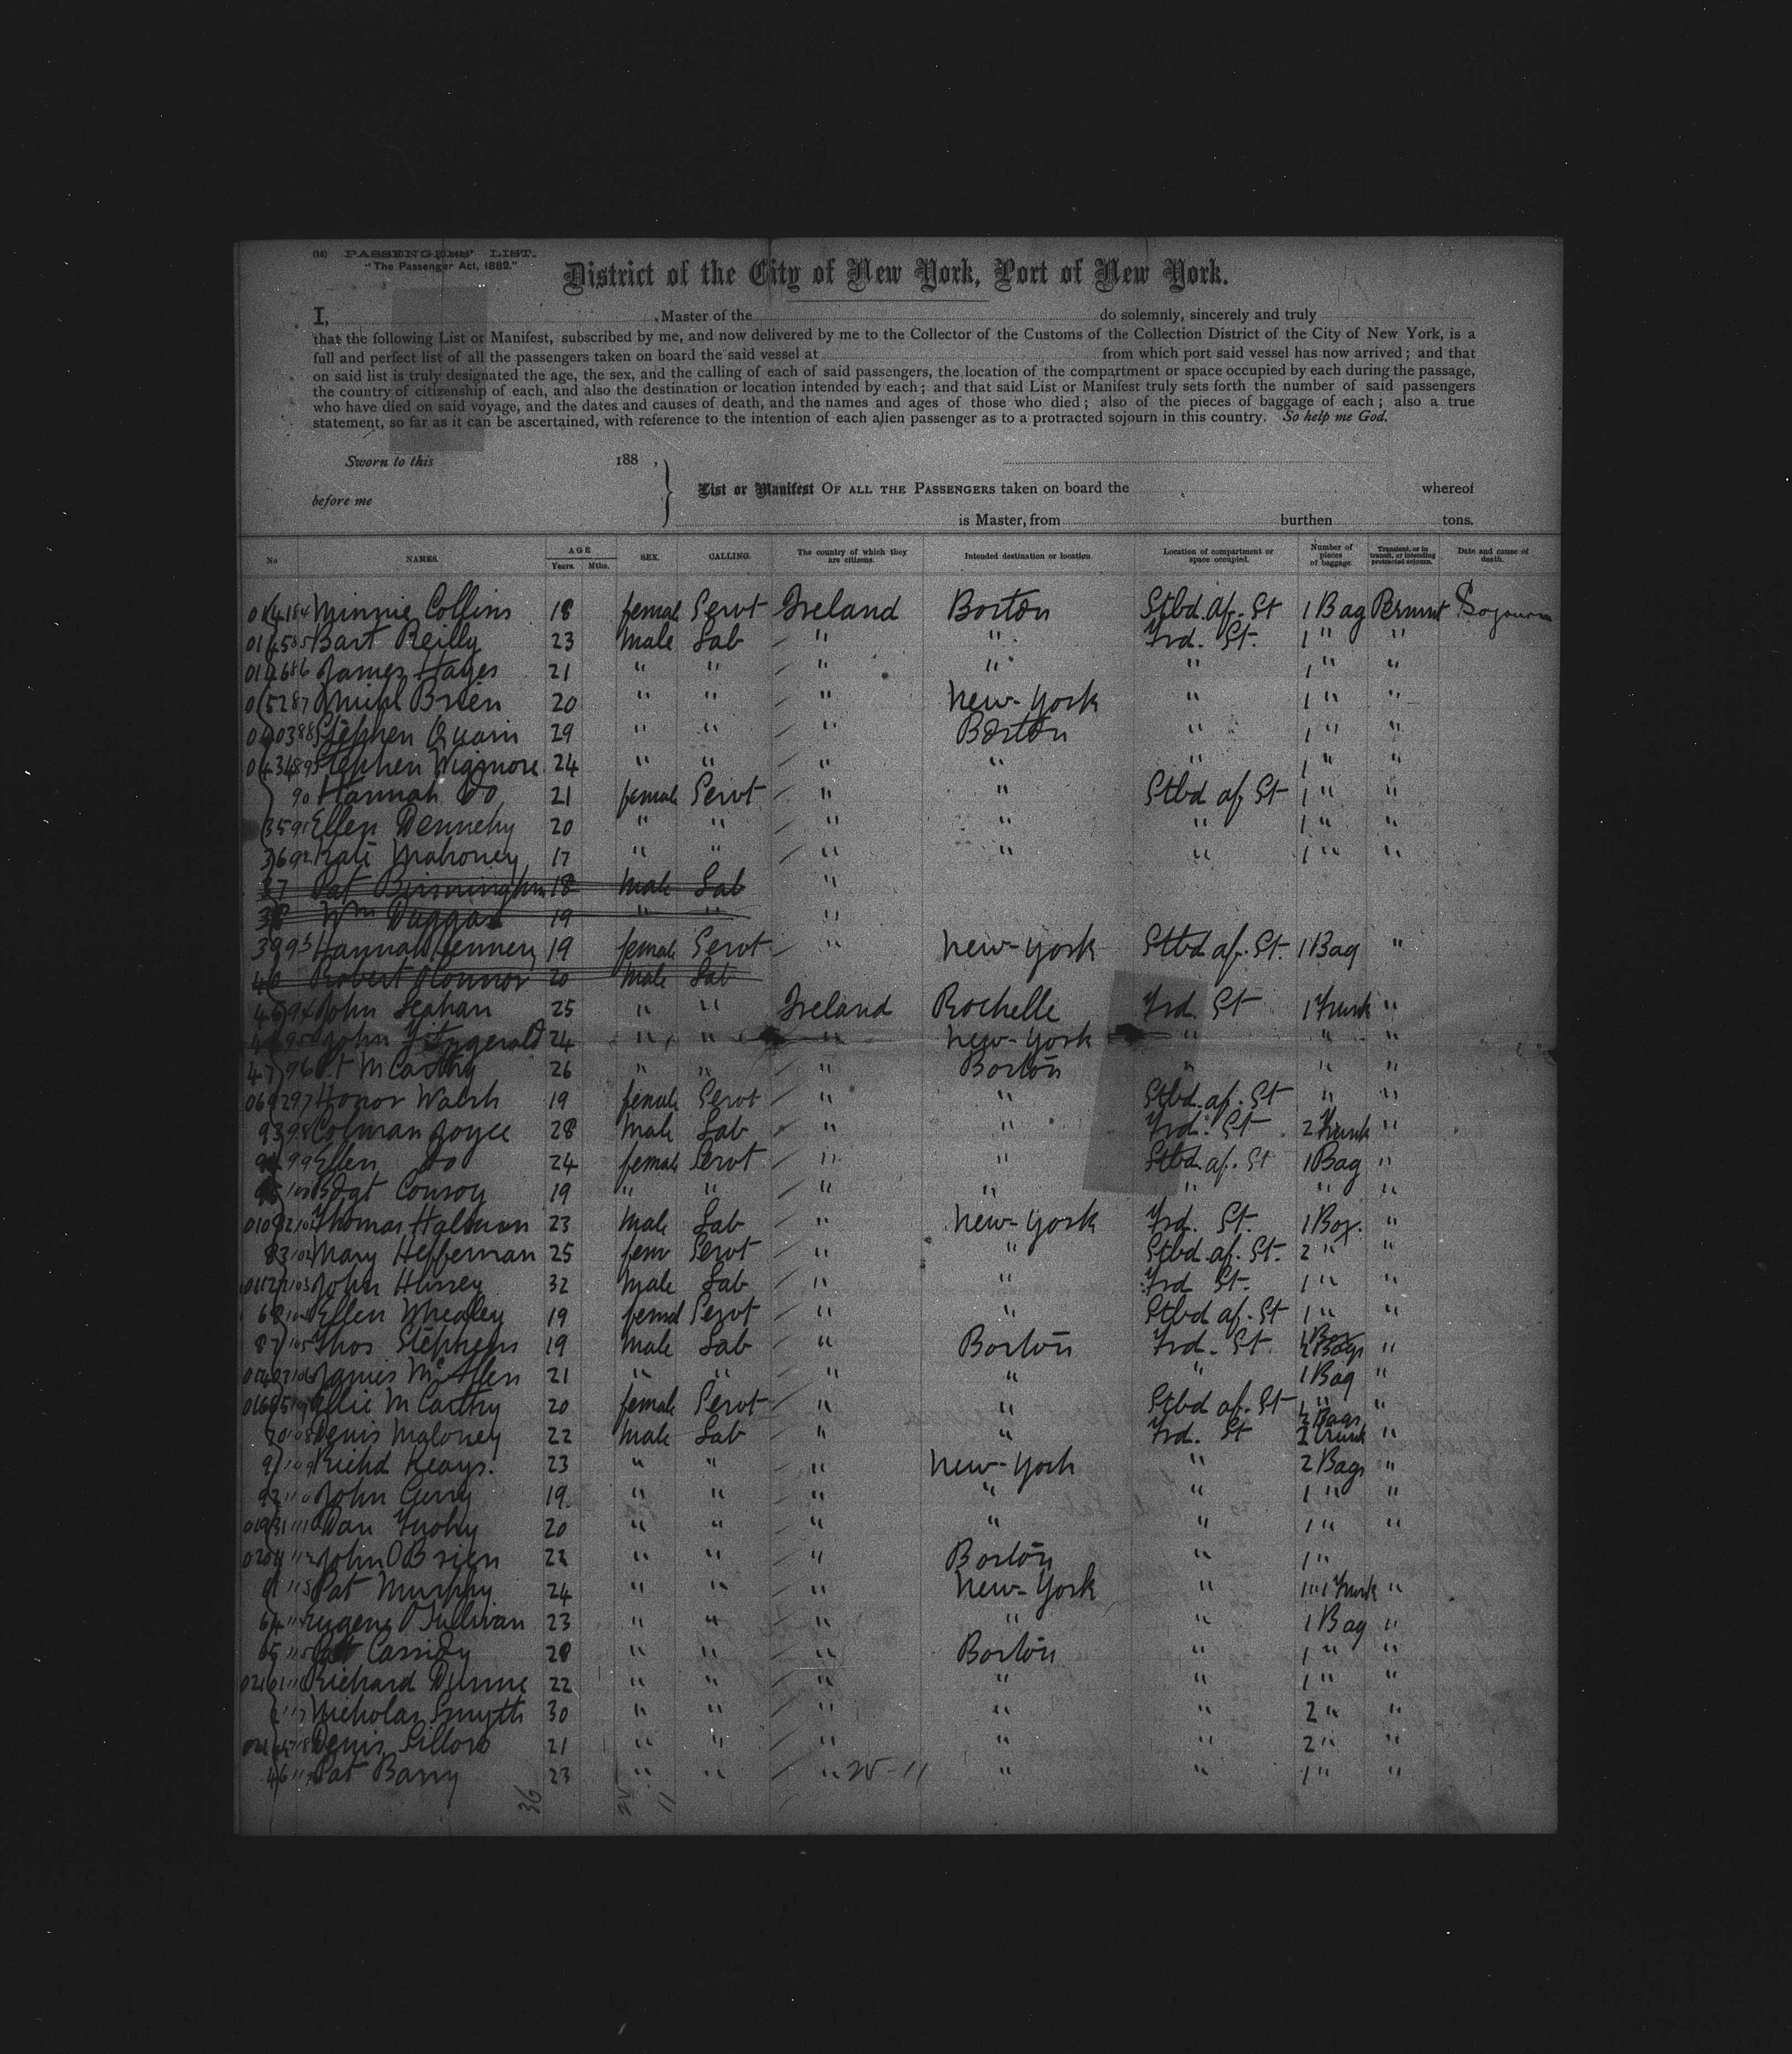 (14) PASSENGERS' LIST.
"The Passenger Act, 1882."
District of the City of New York, Port of New York.
I, Master of the do solemnly, sincerely and truly
that the following List or Manifest, subscribed by me, and now delivered by me to the Collector of the Customs of the Collection District of the City of New York, is a
full and perfect list of all the passengers taken on board the said vessel at from which port said vessel has now arrived; and that
on said list is truly designated the age, the sex, and the calling of each of said passengers, the location of the compartment or space occupied by each during the passage,
the country of citizenship of each, and also the destination or location intended by each; and that said List or Manifest truly sets forth the number of said passengers
who have died on said voyage, and the dates and causes of death, and the names and ages of those who died; also of the pieces of baggage of each; also a true
statement, so far as it can be ascertained, with reference to the intention of each alien passenger as to a protracted sojourn in this country. So help me God.
Sworn to this 188 ,
before me
List or Manifest OF ALL THE PASSENGERS taken on board the whereof
is Master, from burthen tons.
No NAMES. AGE Years. Mths. SEX. CALLING. The country of which they are citizens. Intended destination or location. Location of compartment or space occupied. Number of pieces of baggage. Transient, or in transit, or intending protracted sojourn. Date and cause of death.
84 Minnie Collins 18 femal Servt Ireland Boston Stbd. af. St 1 Bag Sojourn
85 Bart Reilly 23 Male Lab " " Frd. St. 1 " "
86 James Hayes 21 " " " " " 1 " "
87 Michl Brien 20 " " " New-York " 1 " "
88 Stephen Quain 29 " " " Boston " 1 " "
89 Stephen Wigmore 24 " " " " " 1 " "
90 Hannah Do 21 female Servt " " Stbd af. St 1 " "
35 91 Ellen Dennehy 20 " " " " " 1 " "
36 92 Kate Mahoney 17 " " " " " 1 " "
37 Pat Birmingham 18 Male Lab "
38 Wm Duggan 19 " " "
39 93 Hannah 19 female Servt " New-York Stbd af. St. 1 Bag "
40 Robert OConnor 20 Male Lab
94 John Leahan 25 " " Ireland Rochelle Frd. St 1 Trunk "
95 John Fitzgerald 24 " " " New-York " " "
47 96 Pt McCarthy 26 " " " Boston " " "
97 Honor Walsh 19 female Servt " " Stbd. af. St " "
93 98 Colman Joyce 28 Male Lab " " Frd. St 2 Trunk "
99 Ellen do 24 female Servt " " Stbd. af. St 1 Bag "
100 Bdgt Conroy 19 " " " " " " "
101 Thomas 23 Male Lab " New-York Frd. St. 1 Box. "
83 102 Mary Heffernan 25 fem Servt " " Stbd. af. St. 2 " "
103 John Hussey 32 Male Lab " " Frd St. 1 " "
68 104 Ellen Whealey 19 femal Servt " " Stbd af. St 1 " "
87 105 Thos Stephens 19 Male Lab " Boston Frd. St. "
106 James 21 " " " " " 1 Bag "
107 McCarthy 20 female Servt " " Stbd af. St " "
108 Denis Maloney 22 Male Lab " " Frd. St 2 Bags "
91 109 Richd Keays. 23 " " " New-York " 2 Bags "
92 110 John 19 " " " " " 1 " "
111 Dan Tuohy 20 " " " " " 1 " "
112 John OBrien 22 " " " Boston " 1 "
113 Pat Murphy 24 " " " New-York " 1 " 1 Trunk "
64 114 Eugene OSullivan 23 " " " " " 1 Bag "
65 115 Pat Cassidy 28 " " " Boston " 1 " "
116 Richard Dunne 22 " " " " " 1 " "
117 Nicholas Smyth 30 " " " " " 2 " "
118 Denis 21 " " " " " 2 " "
46 119 Pat Barry 23 " " " 25-11 " " 1 " "
36 25 11